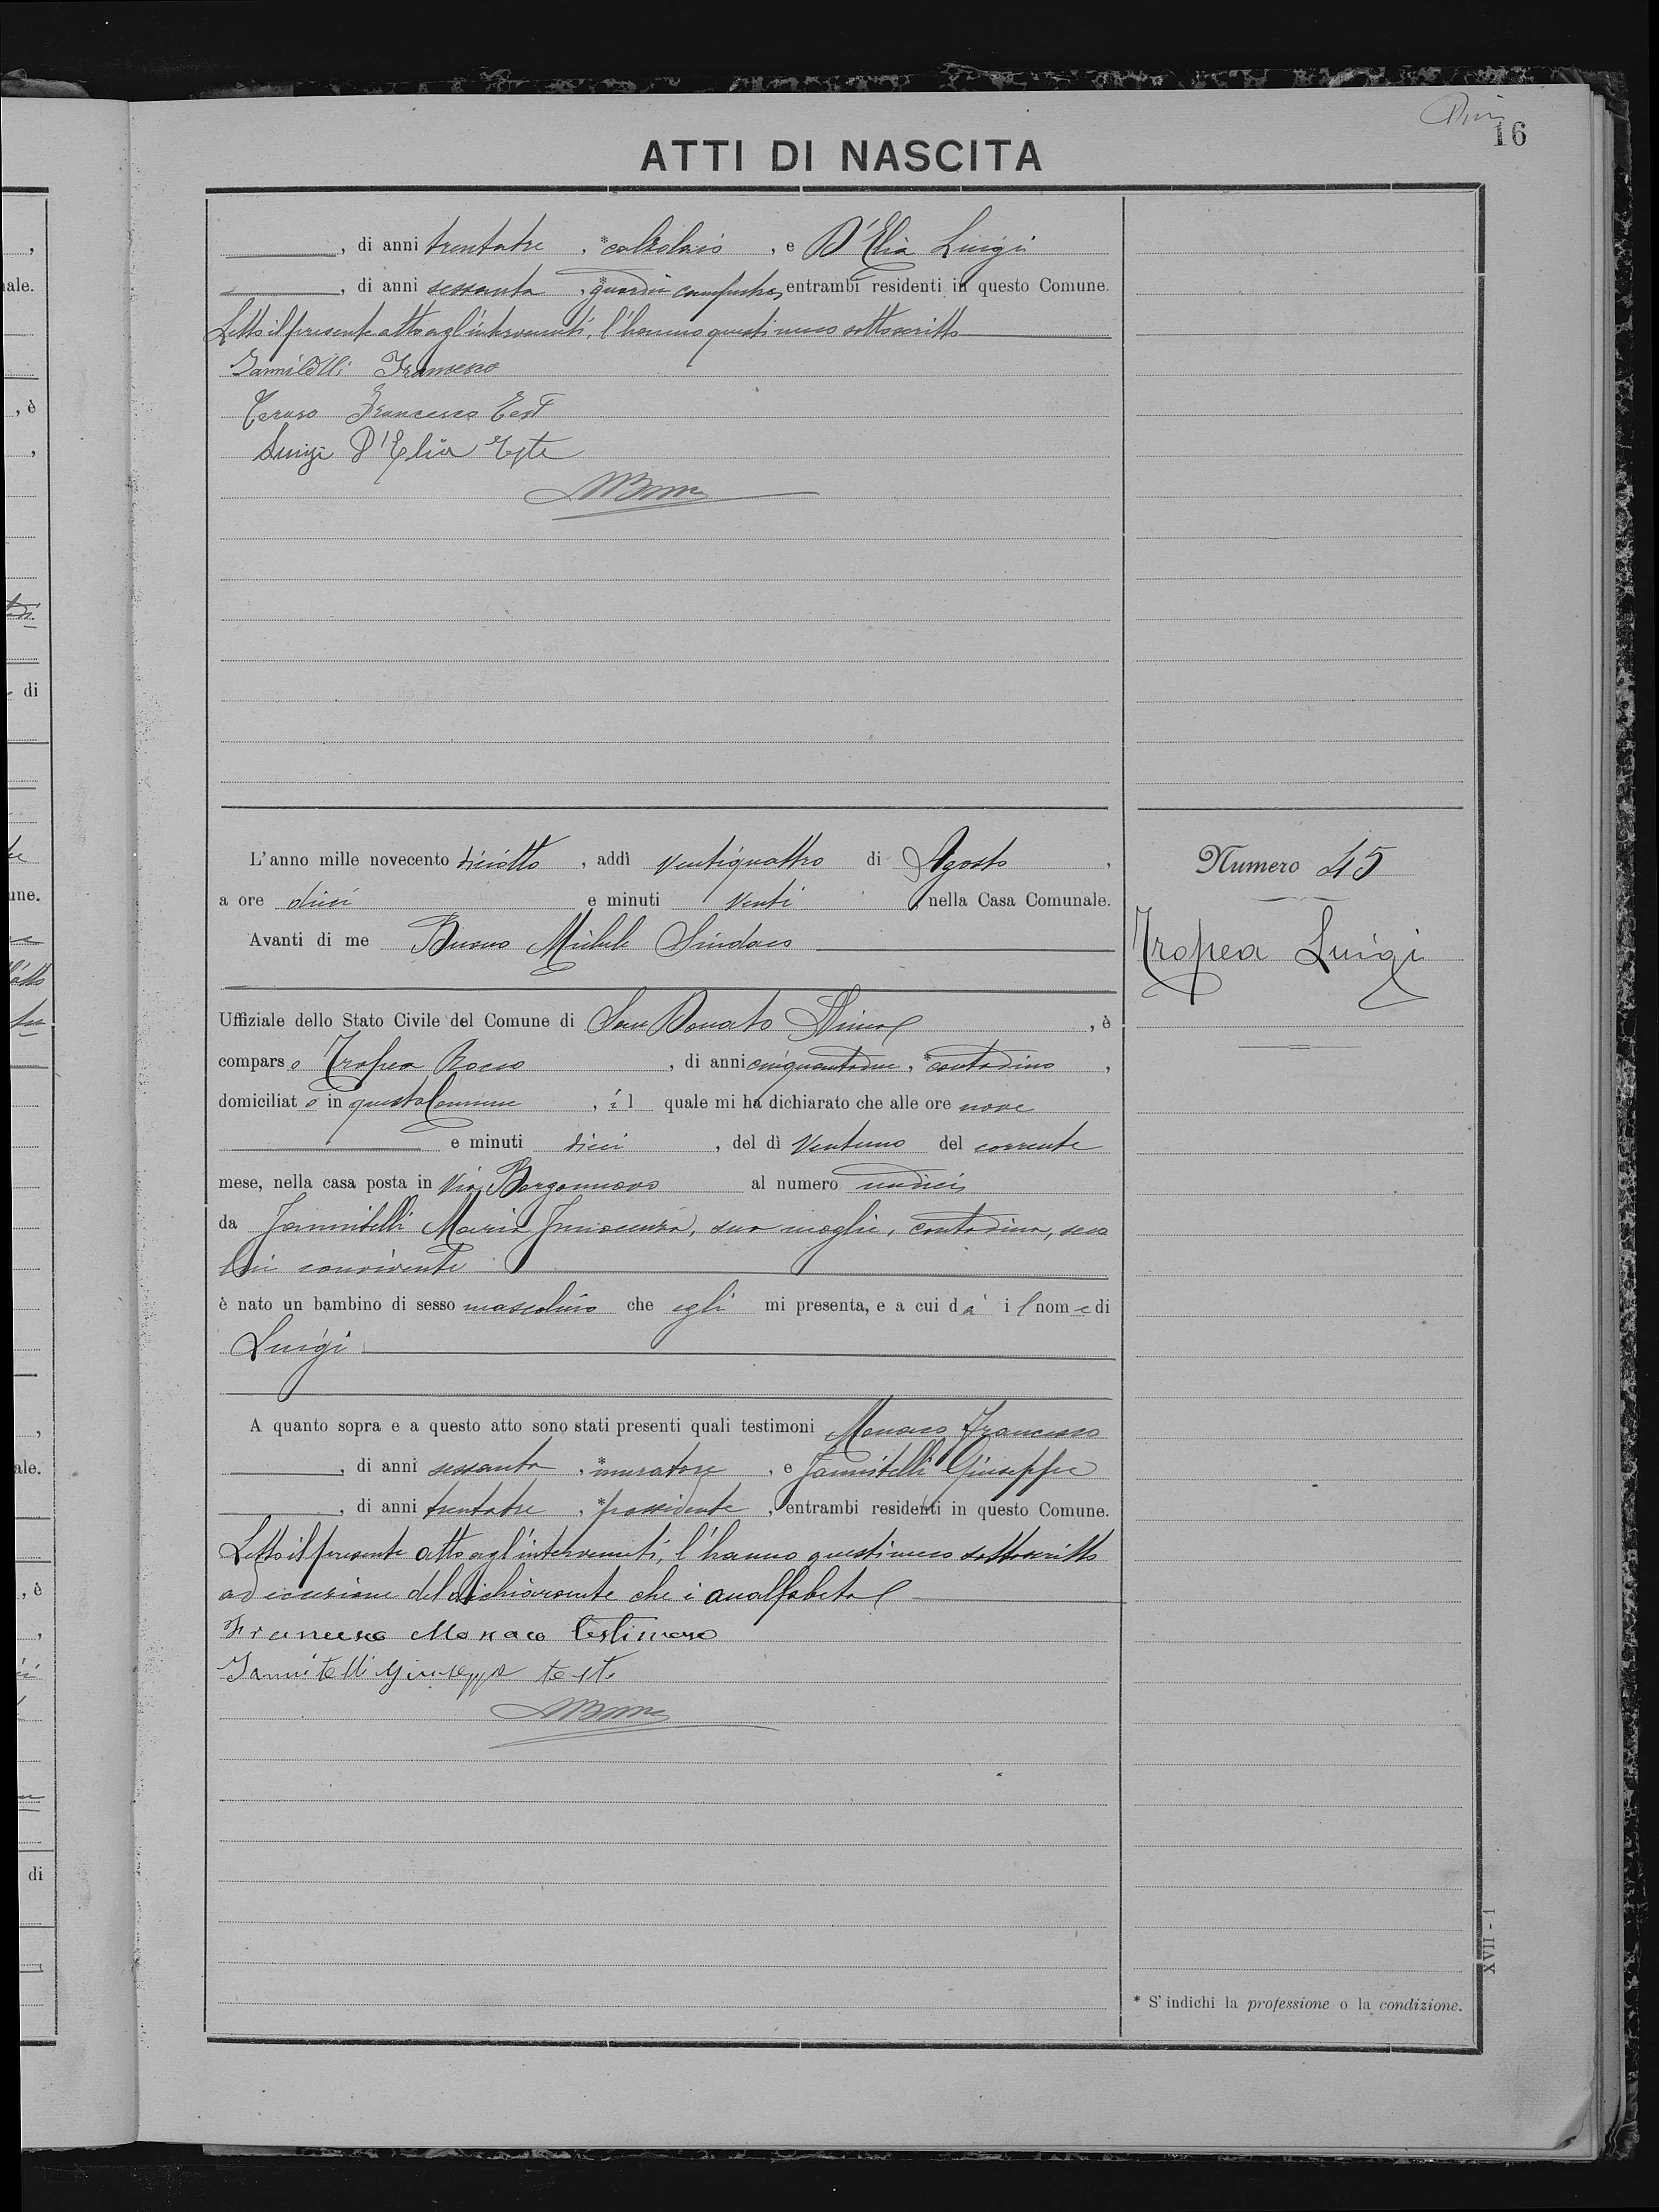 16
ATTI DI NASCITA
, di anni trentatre , *calzolaio , e D'Elia Luigi
, di anni sessanta , *guardia campestre, entrambi residenti in questo Comune.
Letto il presente atto agl'intervenuti, l'hanno questi meco sottoscritto
Iannitelli Francesco
Caruso Francesco Test
Luigi D'Elia Teste
MBuono
L'anno mille novecento diciotto , addì ventiquattro di Agosto ,
a ore dieci e minuti venti , nella Casa Comunale.
Avanti di me Buono Michele Sindaco
Uffiziale dello Stato Civile del Comune di San Donato Ninea , è
comparso Tropea Rocco , di anni cinquantadue , *contadino ,
domiciliato in questo Comune , il quale mi ha dichiarato che alle ore nove
e minuti dieci , del dì ventuno del corrente
mese, nella casa posta in Via Borgonuovo al numero undici,
da Jannitelli Maria Innocenza, sua moglie, contadina, seco
lui convivente
è nato un bambino di sesso mascolino che egli mi presenta, e a cui dà il nome di
Luigi
A quanto sopra e a questo atto sono stati presenti quali testimoni Monaco Francesco
, di anni sessanta , *muratore , e Jannitelli Giuseppe
, di anni trentatre , *possidente , entrambi residenti in questo Comune.
Letto il presente atto agl'intervenuti, l'hanno questi meco sottoscritto
ad eccezione del dichiarante che è analfabeta
Francesco Monaco testimone
Iannitelli Giuseppe teste
MBuono
Numero 45
Tropea Luigi
* S'indichi la professione o la condizione.
XVII - 1